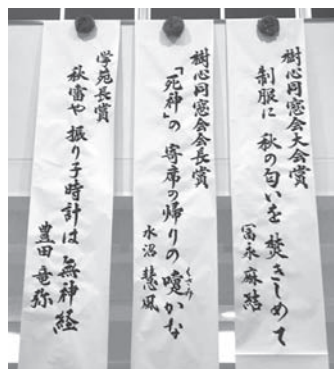 樹心同窓会大会賞
制服に 秋の匂いを 焚きしめて
冨永 麻結
樹心同窓会会長賞
「死神」の 寄席の帰りの 嚔かな
くさめ
水沼 慧風
学苑長賞
秋雷や 振り子時計は 無神経
豊田 竜弥